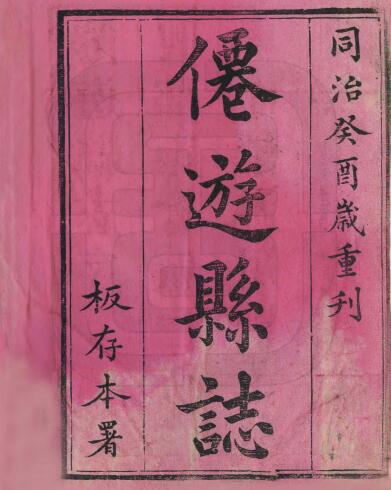 同治癸酉歲重刊
僊遊縣誌
板存本署